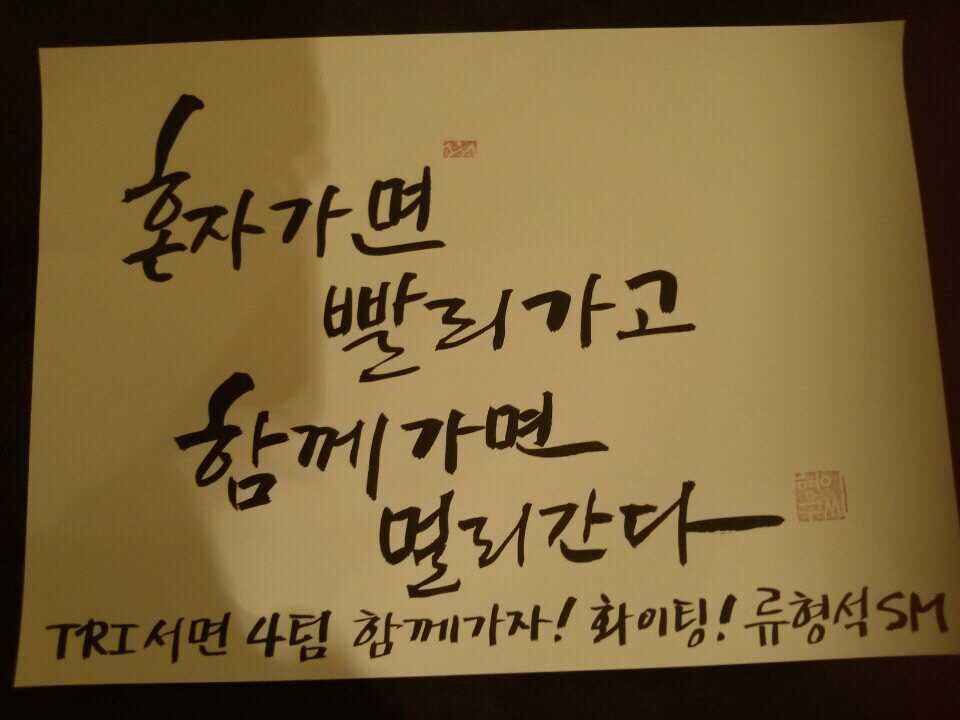 혼자가면
빨리가고
함께가면
멀리간다
TRI서면 4텀 함께가자! 화이팅! 류형석 SM